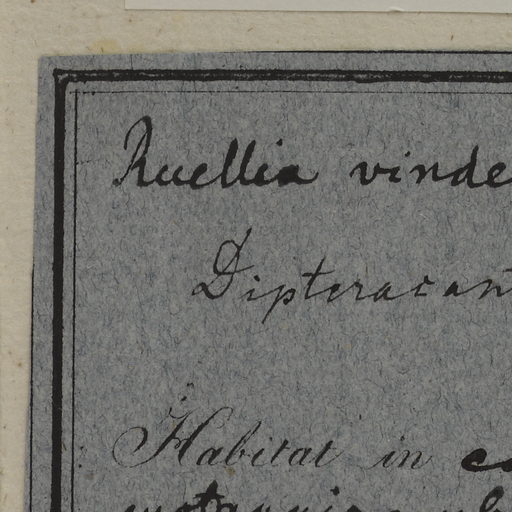 Ruellia vinde
Dipteracan
Habitat in